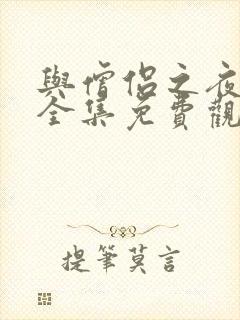 與僧侶之夜
全集免費觀
提筆莫言